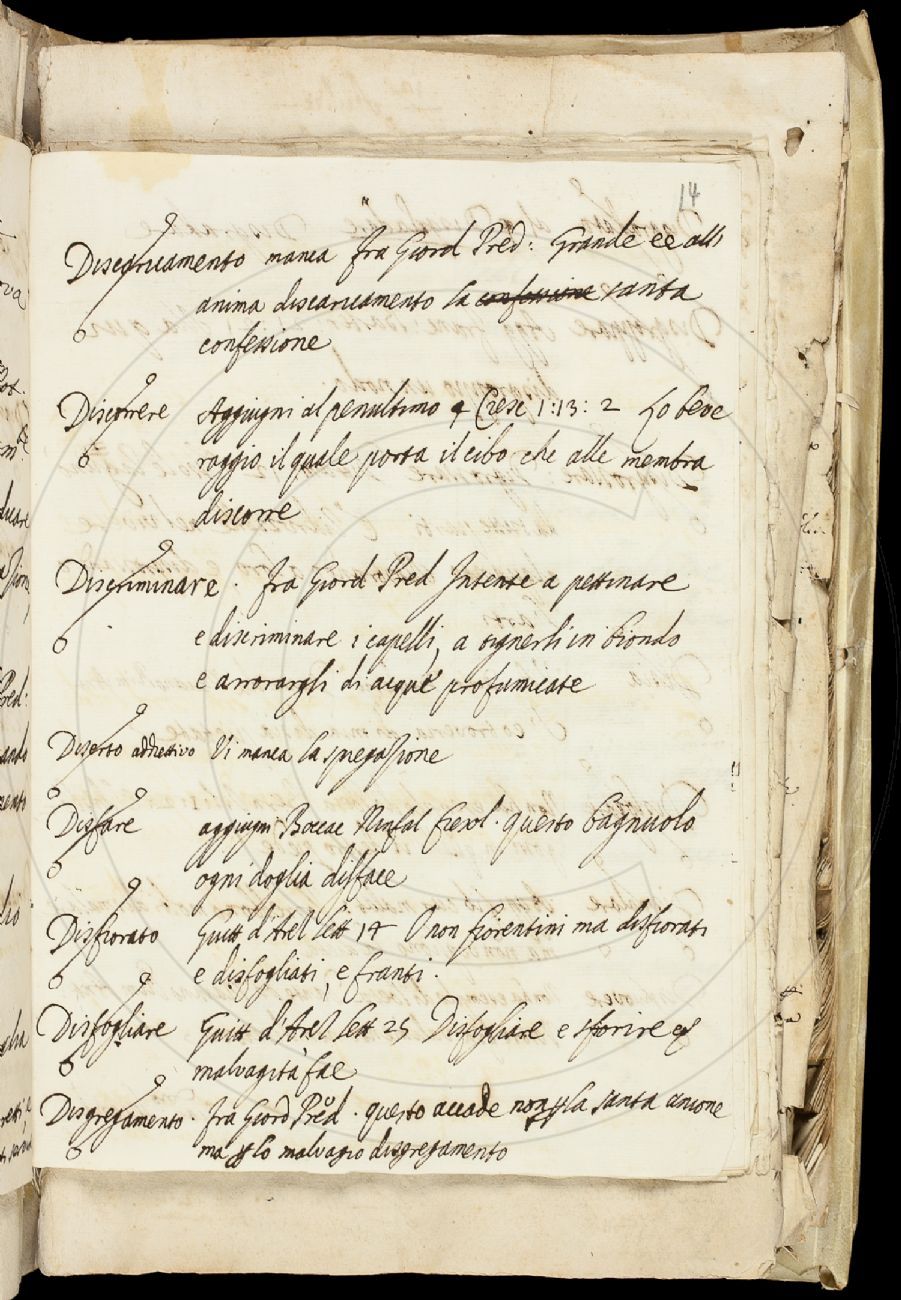 14
Discaricamento manca fra Giord Pred: Grande ee all
anima discaricamento la confessione santa
confessione
Discorrere Aggiugni al penultimo q Cresc 1:13: 2 Lo beve
raggio il quale porta il cibo che alle membra
discorre
Discriminare. fra Giord Pred Intente a pettinare
e discriminare i capelli, a tignerli in biondo
e arrorargli di acque profumicate
Diserto addiettivo Vi manca la spiegazione
Disfare aggiugni Boccac Ninfal fiesol. questo bagnuolo
ogni doglia disface
Disfiorato Guitt d'Arez lett 14 O non fiorentini ma disfiorati
e disfogliati, e franti.
Disfogliare Guitt d'Arez lett 25 Disfogliare e sfiorire
malvagità fae
Disgregamento. fra Giord Pred. questo accade non la santa unione
ma lo malvagio disgregamento